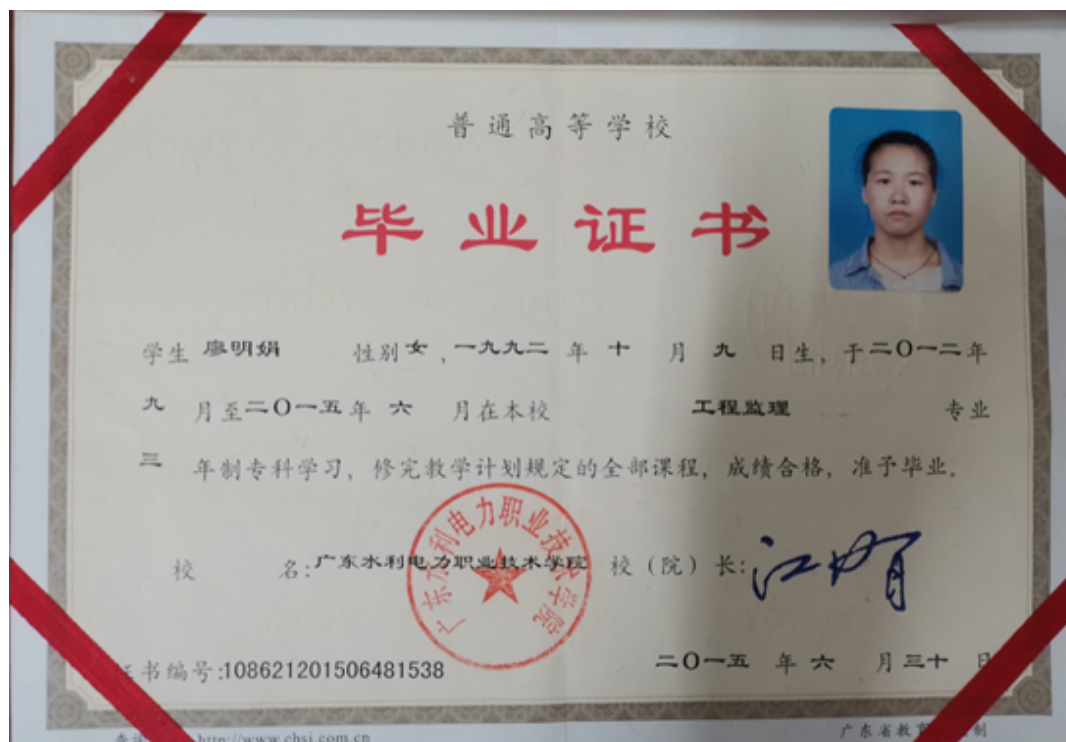 普通高等学校
毕业证书
学生 廖明娟 性别 女，一九九二 年 十 月 九 日生，于二〇一二年
九 月至二〇一五年 六 月在本校 工程监理 专业
三 年制专科学习，修完教学计划规定的全部课程，成绩合格，准予毕业。
广东水利电力职业技术学院
校 名：广东水利电力职业技术学院 校（院）长：
证书编号:108621201506481538 二〇一五 年 六 月 三十 日
http://www.chsi.com.cn 广东省教育 制